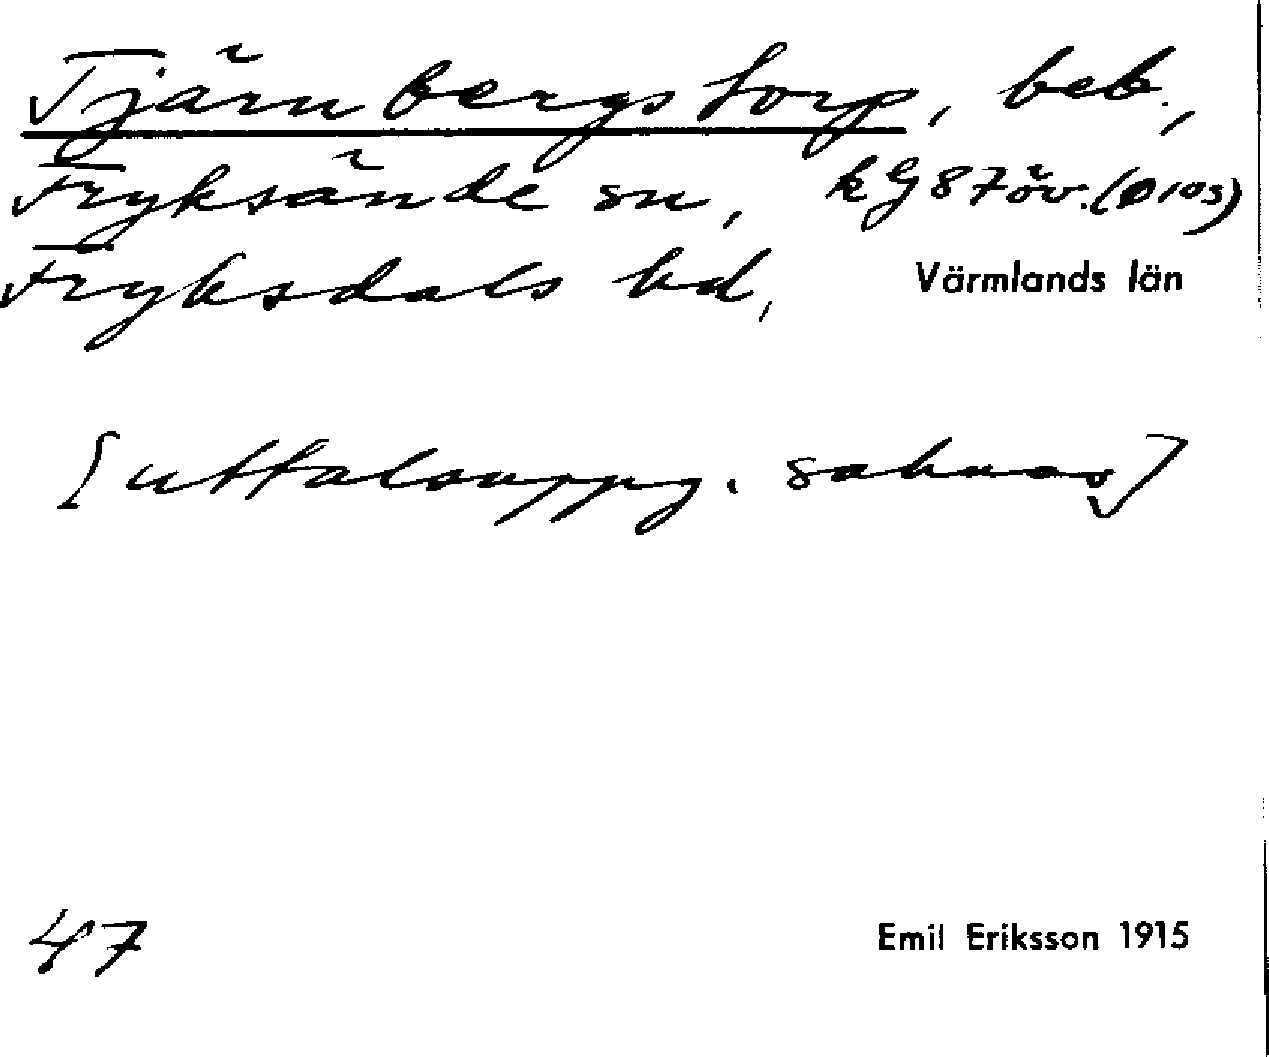 Tjärnbergstorp, beb.,
Fryksände sn, kG87öv.(Ø103)
Fryksdals hd, Värmlands län
[uttalsuppg. saknas]
47 Emil Eriksson 1915